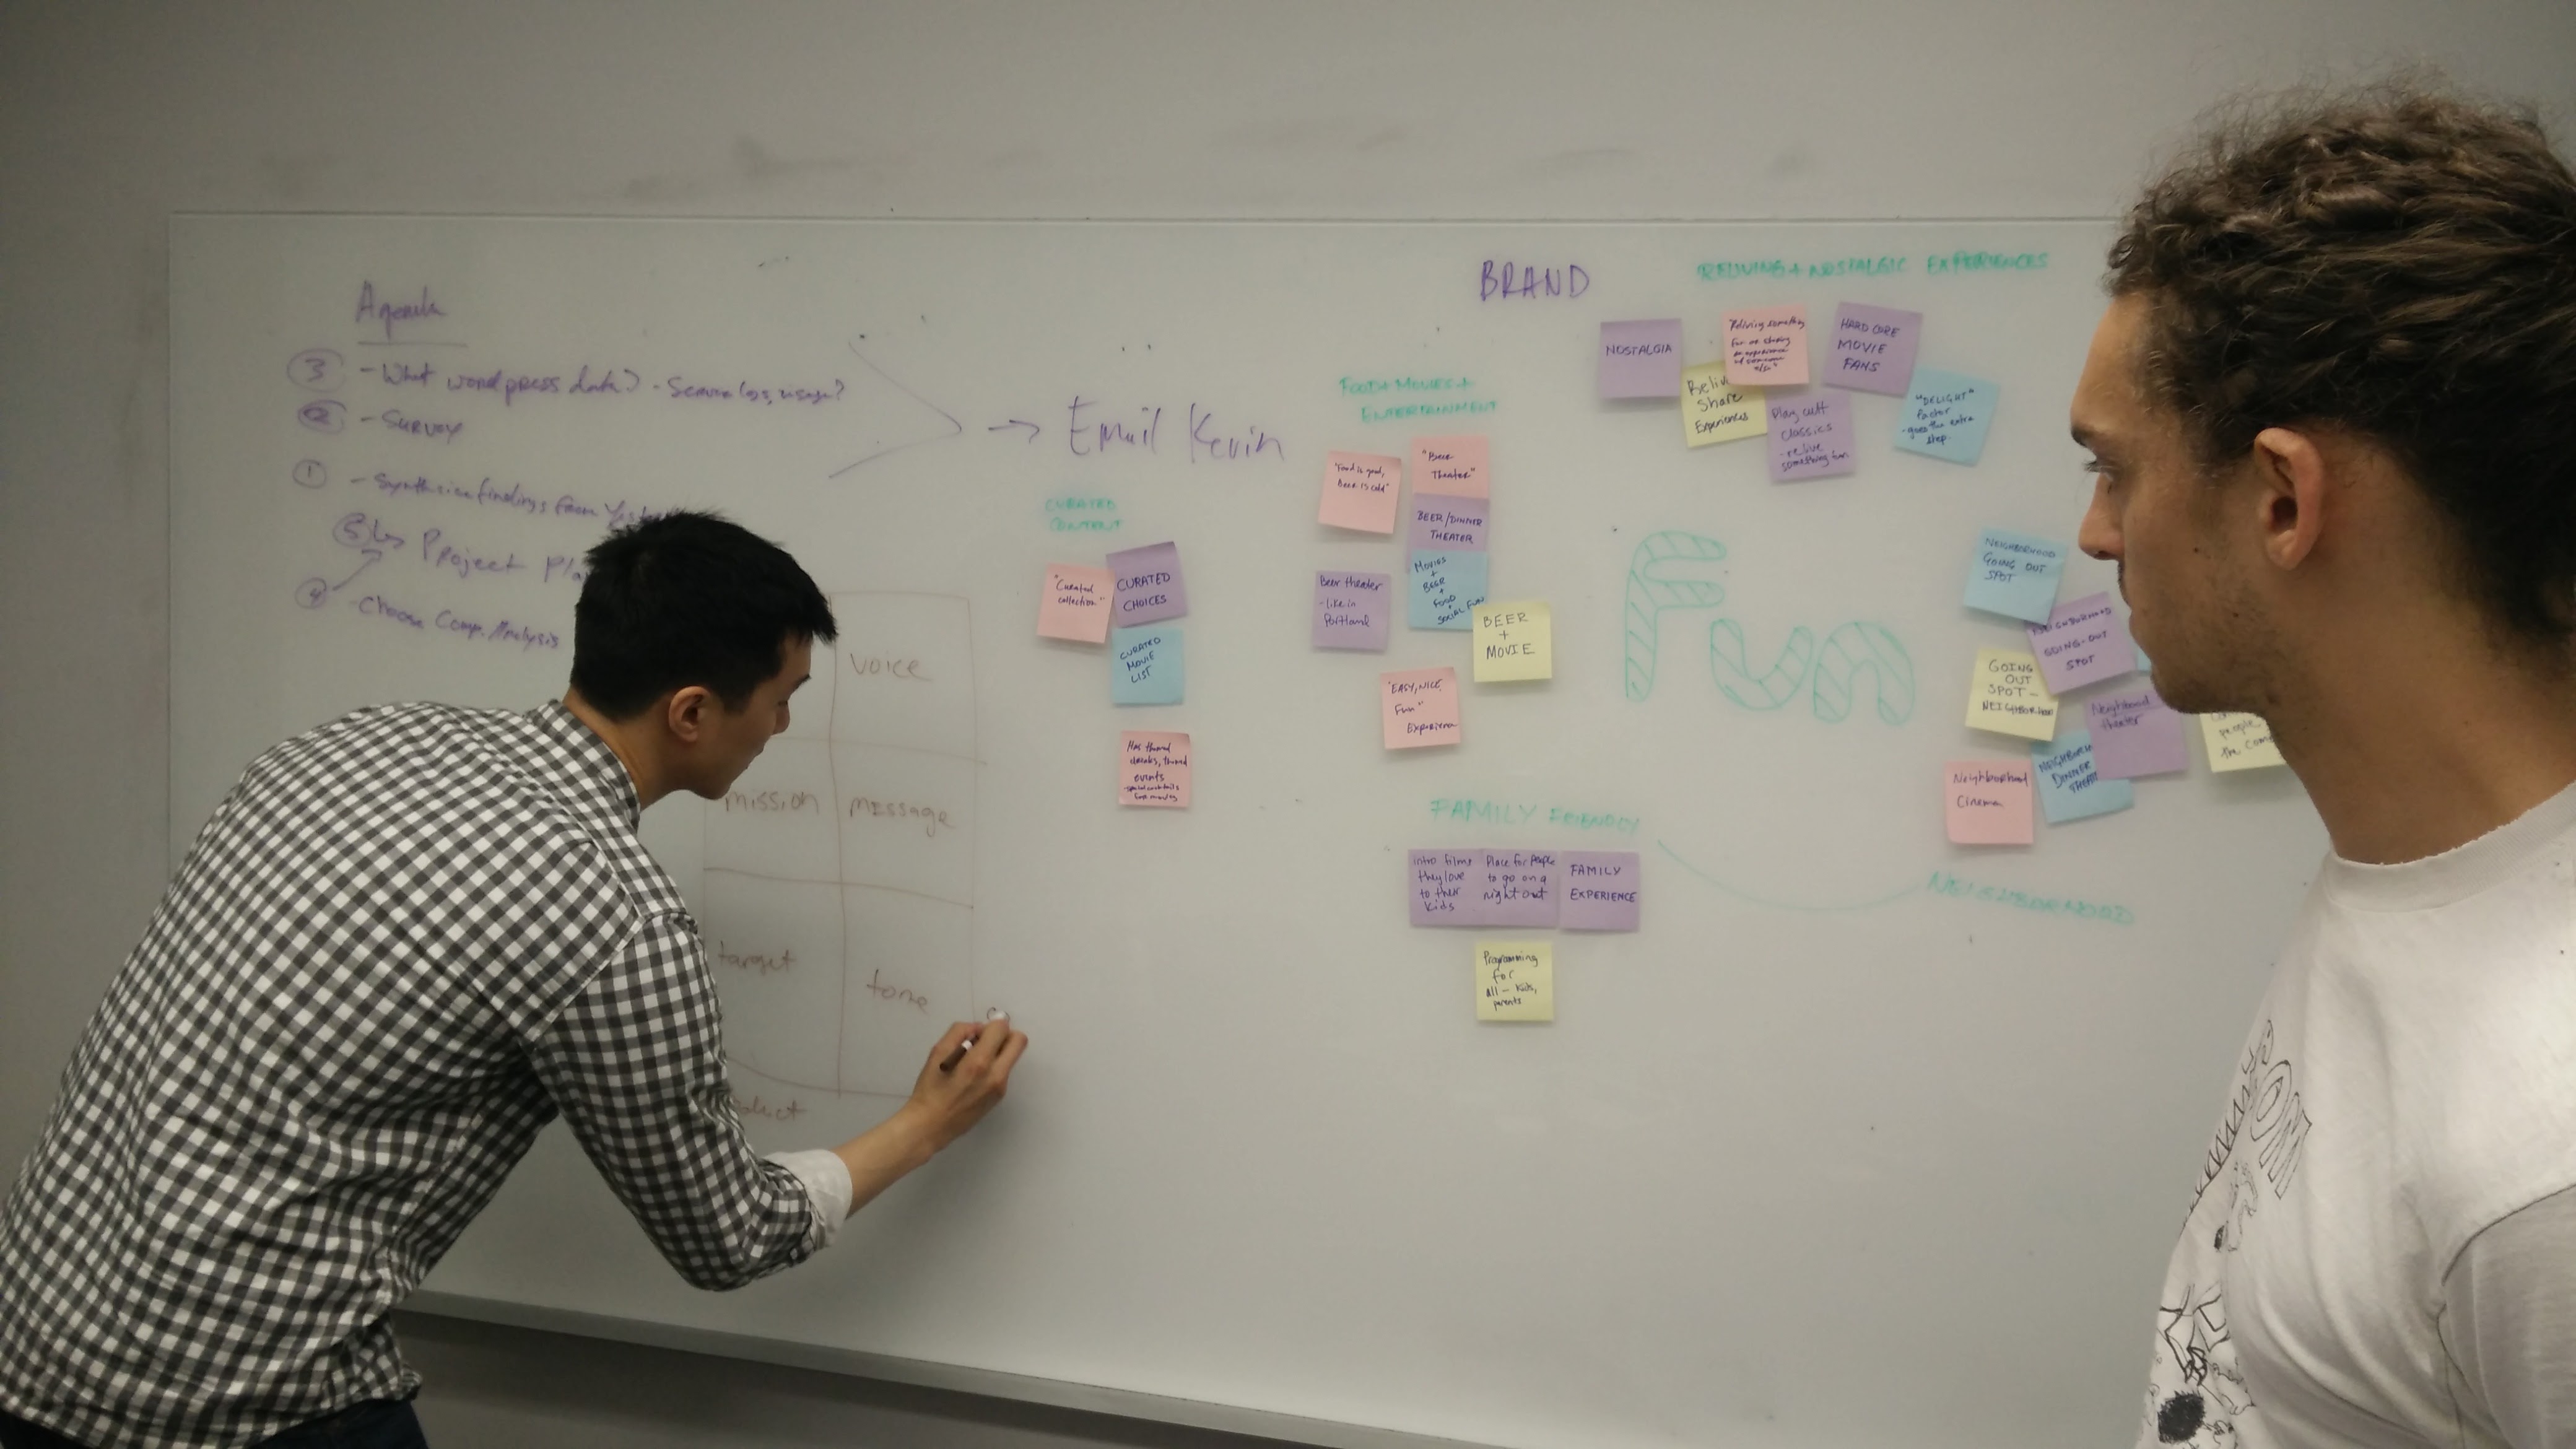 Agenda
③ - What wordpress data? - Server logs, usage?
② - Survey
① - Synthesize findings from
⑤ ↳ Project
④ - Choose Comp. Analysis
→ Email Kevin
voice
mission message
target tone
BRAND
CURATED
CONTENT
"Curated
collection"
CURATED
CHOICES
CURATED
MOVIE
LIST
Has themed
drinks, themed
events
- special cocktails
for movies
FOOD + MOVIES +
ENTERTAINMENT
"Food is good,
Beer is cold"
"Beer
Theater"
BEER/DINNER
THEATER
Beer theater
- like in
Portland
MOVIES
+
BEER
+
FOOD
+
SOCIAL FUN
BEER
+
MOVIE
"EASY, NICE,
Fun"
Experience
RELIVING + NOSTALGIC EXPERIENCES
NOSTALGIA
"Reliving something
fun or sharing
an experience
w/ someone
else"
HARD CORE
MOVIE
FANS
Share
Experiences
Play cult
classics
- relive
something fun
"DELIGHT"
factor
- goes the extra
step.
Fun
NEIGHBORHOOD
GOING OUT
SPOT
NEIGHBORHOOD
GOING-OUT
SPOT
GOING
OUT
SPOT -
NEIGHBORHOOD
Neighborhood
theater
DINNER
Neighborhood
Cinema
people
the
FAMILY FRIENDLY
intro films
they love
to their
kids
Place for people
to go on a
night out
FAMILY
EXPERIENCE
Programming
for
all - kids,
parents
NEIGHBORHOOD